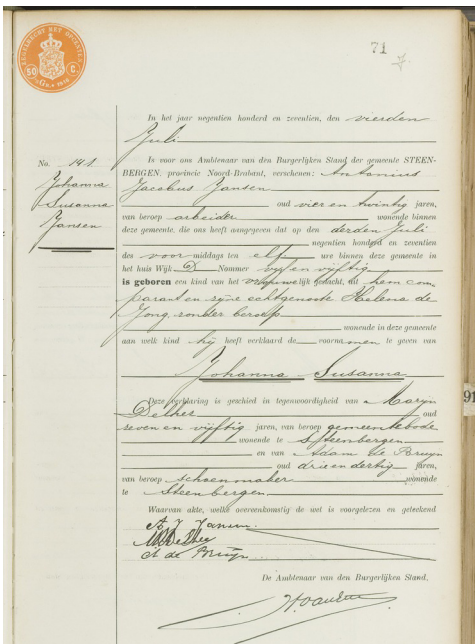 71
50 C.
In het jaar negentien honderd en zeventien, den vierden
Juli
No. 141
Johanna
Susanna
Jansen
Is voor ons Ambtenaar van den Burgerlijken Stand der gemeente STEEN-
BERGEN, provincie Noord-Brabant, verschenen: Antonius
Jacobus Jansen
oud vier en twintig jaren,
van beroep arbeider wonende binnen
deze gemeente, die ons heeft aangegeven dat op den derden Juli
negentien honderd en zeventien
des voor middags ten elf ure binnen deze gemeente in
het huis Wijk D Nummer vijf en vijftig
is geboren een kind van het vrouwelijk geslacht, uit hem com
parant en zijne echtgenoote Helena de
Jong, zonder beroep
wonende in deze gemeente
aan welk kind hij heeft verklaard de voornamen te geven van
Johanna Susanna
Deze verklaring is geschied in tegenwoordigheid van Marijn
oud
zeven en vijftig jaren, van beroep gemeentebode
wonende te Steenbergen
en van Adam de Bruyn
oud drie en dertig jaren,
van beroep schoenmaker wonende
te Steenbergen
Waarvan akte, welke overeenkomstig de wet is voorgelezen en geteekend
A J Jansen
A de Bruijn
De Ambtenaar van den Burgerlijken Stand,
91